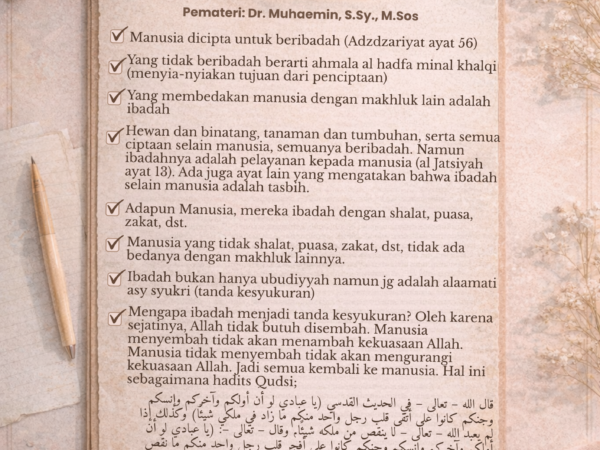 Pemateri: Dr. Muhaemin, S.Sy., M.Sos
Manusia dicipta untuk beribadah (Adzdzariyat ayat 56)
Yang tidak beribadah berarti ahmala al hadfa minal khalqi
(menyia-nyiakan tujuan dari penciptaan)
Yang membedakan manusia dengan makhluk lain adalah
ibadah
Hewan dan binatang, tanaman dan tumbuhan, serta semua
ciptaan selain manusia, semuanya beribadah. Namun
ibadahnya adalah pelayanan kepada manusia (al Jatsiyah
ayat 13). Ada juga ayat lain yang mengatakan bahwa ibadah
selain manusia adalah tasbih.
Adapun Manusia, mereka ibadah dengan shalat, puasa,
zakat, dst.
Manusia yang tidak shalat, puasa, zakat, dst, tidak ada
bedanya dengan makhluk lainnya.
Ibadah bukan hanya ubudiyyah namun jg adalah alaamati
asy syukri (tanda kesyukuran)
Mengapa ibadah menjadi tanda kesyukuran? Oleh karena
sejatinya, Allah tidak butuh disembah. Manusia
menyembah tidak akan menambah kekuasaan Allah.
Manusia tidak menyembah tidak akan mengurangi
kekuasaan Allah. Jadi semua kembali ke manusia. Hal ini
sebagaimana hadits Qudsi;
قال الله – تعالى – في الحديث القدسي (يا عبادي لو أن أولكم وآخركم وإنسكم
وجنكم كانوا على أتقى قلب رجل واحد منكم ما زاد في ملكي شيئًا) وكذلك إذا
لم يعبد الله – تعالى – لا ينقص من ملكه شيئًا، وقال – تعالى –: (يا عبادي لو أن
أولكم وآخركم وإنسكم وجنكم كانوا على أفجر قلب رجل واحد منكم ما نقص